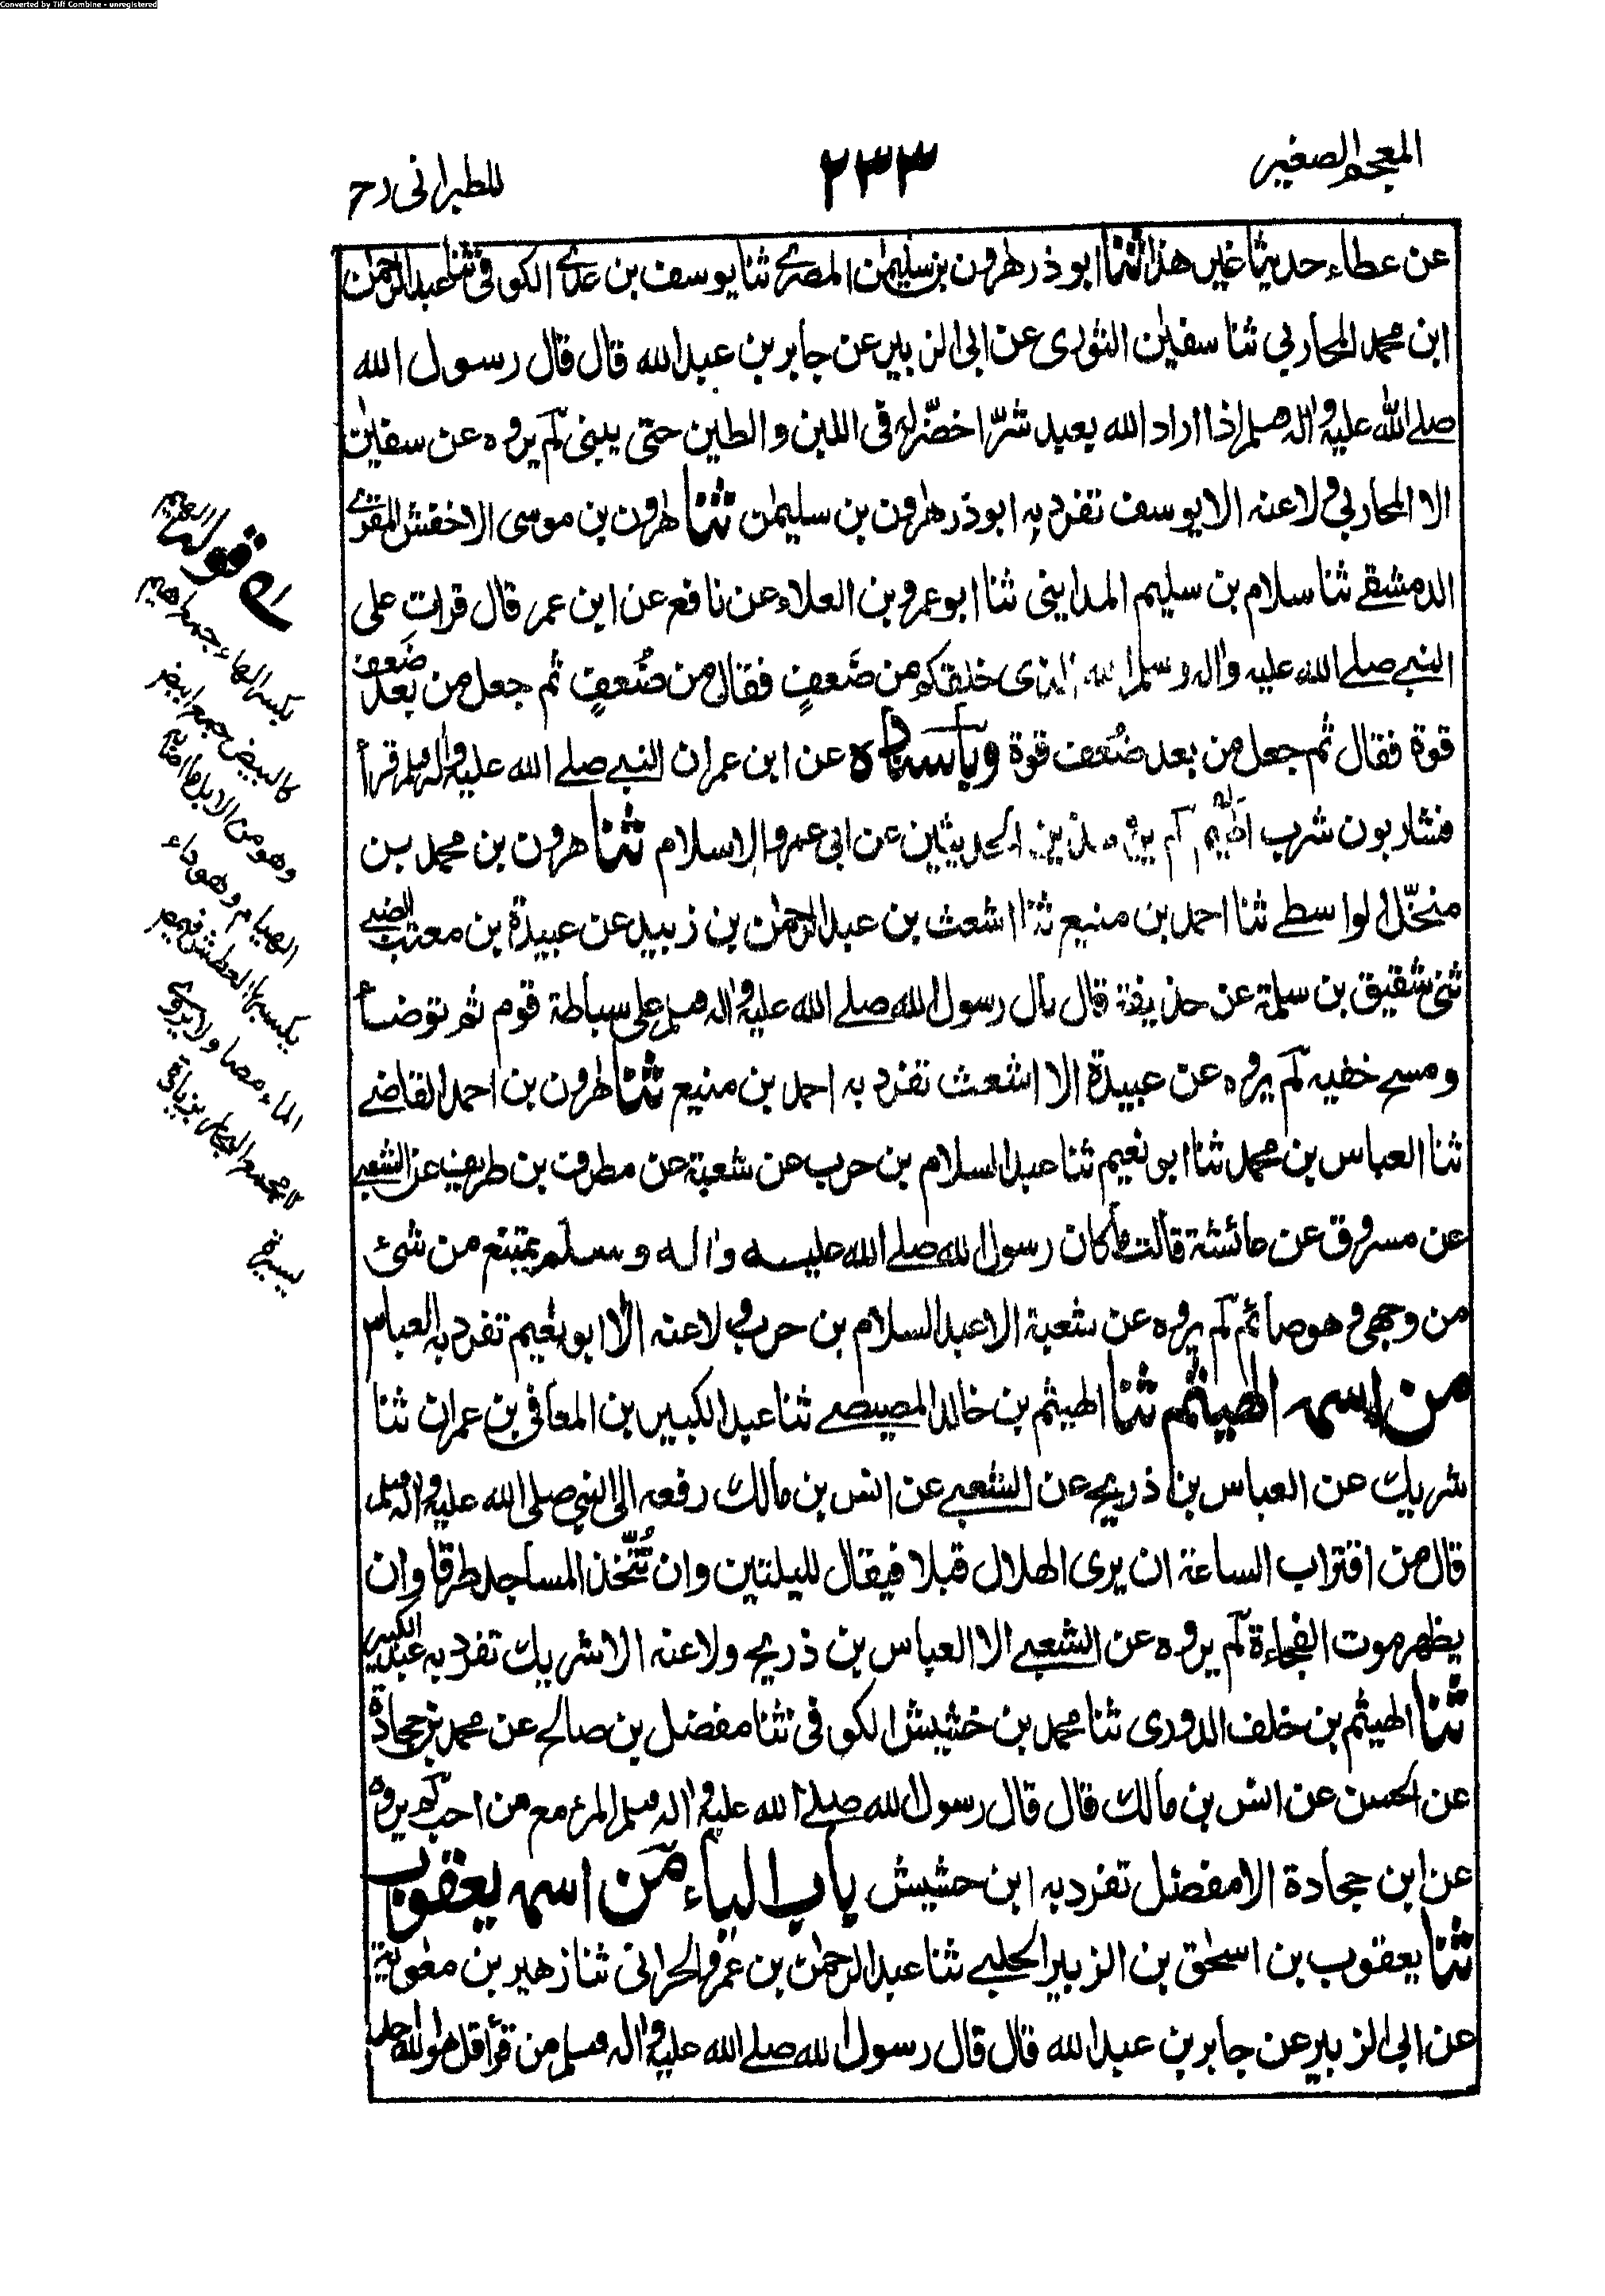 Converted by Tiff Combine - unregistered
المعجم الصغير
٢٣٣
للطبرانى رح
عن عطاء حديثا غير هذا ثنا ابو ذر هرون بن سليمٰن المصرى ثنا يوسف بن عدى الكوفى ثنا عبد الرحمٰن
ابن محمد المحاربى ثنا سفيٰن الثورى عن ابى الزبير عن جابر بن عبد الله قال قال رسول الله
صلى الله عليه واله وسلم اذا اراد الله بعبد شرّا خضّر له فى اللبن والطين حتى يبنى لم يروه عن سفيٰن
الا المحاربى ولا عنه الا يوسف تفرد به ابو ذر هرون بن سليمٰن ثنا هرون بن موسى الاخفش المقرى
الدمشقى ثنا سلام بن سليم المداينى ثنا ابو عمرو بن العلاء عن نافع عن ابن عمر قال قرات على
النبى صلى الله عليه واله وسلم الله الذى خلقكم من ضَعفٍ فقال من ضُعفٍ ثم جعل من بعد ضَعف
قوة فقال ثم جعل من بعد ضُعف قوة وباسناده عن ابن عمر ان النبى صلى الله عليه واله وسلم قرأ
فشاربون شرب الهيم لم يرو هذين الحديثين عن ابى عمرو الا سلام ثنا هرون بن محمد بن
منخّل الواسطى ثنا احمد بن منيع ثنا اشعث بن عبد الرحمٰن بن زبيد عن عبيدة بن معتب الضبى
ثنى شقيق بن سلمة عن حذيفة قال بال رسول الله صلى الله عليه واله وسلم على سباطة قوم ثم توضأ
ومسح خفيه لم يروه عن عبيدة الا اشعث تفرد به احمد بن منيع ثنا هرون بن احمد القاضى
ثنا العباس بن محمد ثنا ابو نعيم ثنا عبد السلام بن حرب عن شعبة عن مطرف بن طريف عن الشعبى
عن مسروق عن عائشة قالت ما كان رسول الله صلى الله عليه واله وسلم يمتنع من شئ
من وجهى وهو صائم لم يروه عن شعبة الا عبد السلام بن حرب ولا عنه الا ابو نعيم تفرد به العباس
من اسمه الهيثم ثنا الهيثم بن خالد المصيصى ثنا عبد الكبير بن المعافى بن عمران ثنا
شريك عن العباس بن ذريح عن الشعبى عن انس بن مالك رفعه الى النبى صلى الله عليه واله وسلم
قال من اقتراب الساعة ان يرى الهلال قبلا فيقال لليلتين وان تُتّخذ المساجد طرقا وان
يظهر موت الفجاءة لم يروه عن الشعبى الا العباس بن ذريح ولا عنه الا شريك تفرد به عبد الكبير
ثنا الهيثم بن خلف الدورى ثنا محمد بن خشيش الكوفى ثنا مفضل بن صالح عن محمد بن جحادة
عن الحسن عن انس بن مالك قال قال رسول الله صلى الله عليه واله وسلم المرء مع من احب لم يروه
عن ابن جحادة الا مفضل تفرد به ابن حشيش باب الياء من اسمه يعقوب
ثنا يعقوب بن اسحٰق بن الزبير الحلبى ثنا عبد الرحمٰن بن عمرو الحرانى ثنا زهير بن معٰوية
عن ابى الزبير عن جابر بن عبد الله قال قال رسول الله صلى الله عليه واله وسلم من قرأ قل هو الله احد
قوله الهيم
بكسر الهاء جمع اهيم
كالبيض جمع ابيض
وهو من الابل ما اصابه
الهيام وهو داء
العطش فيمص
الماء مصا ولا يروى